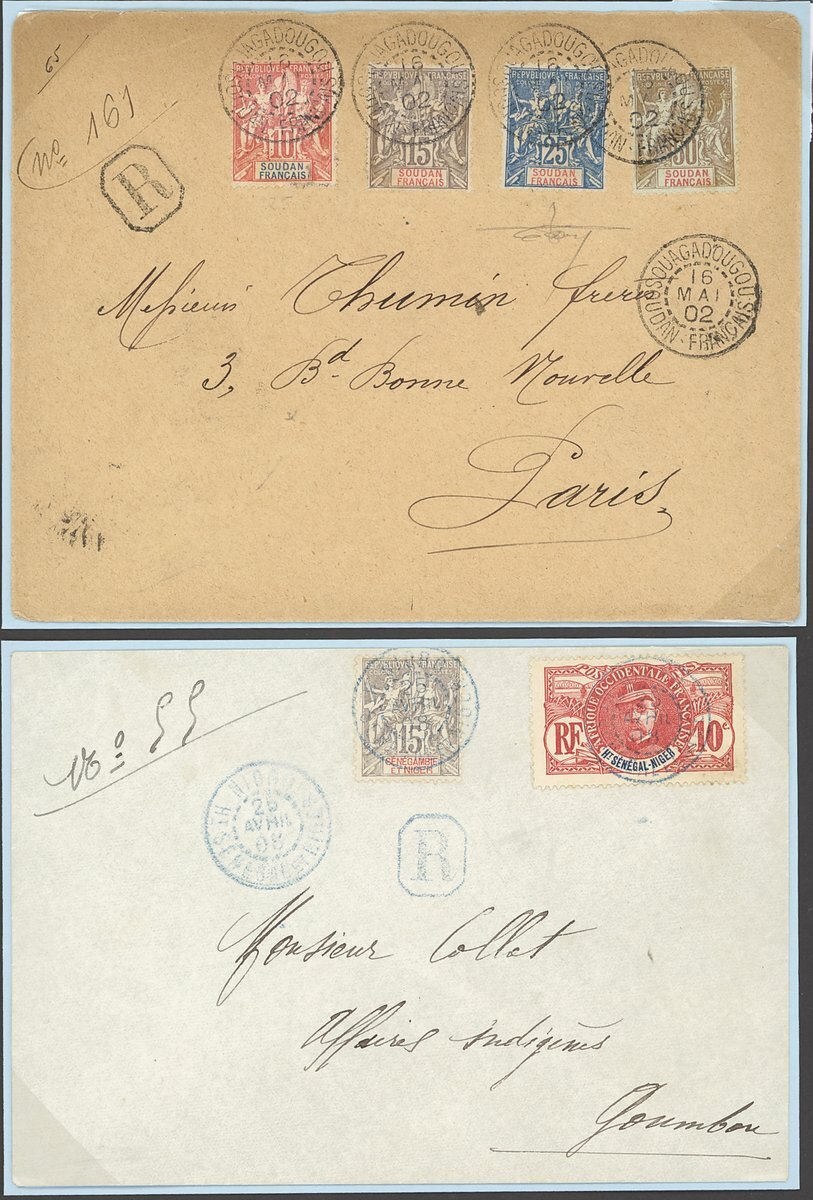 65
No 161
R
REPUBLIQUE FRANCAISE
COLONIES POSTES
10
SOUDAN
FRANÇAIS
REPUBLIQUE FRANCAISE
COLONIES POSTES
15
SOUDAN
FRANÇAIS
REPUBLIQUE FRANCAISE
COLONIES POSTES
25
SOUDAN
FRANÇAIS
REPUBLIQUE FRANCAISE
COLONIES POSTES
50
SOUDAN
FRANÇAIS
OUAGADOUGOU
16
MAI
02
SOUDAN-FRANÇAIS
Messieurs Thumin frères
3, Bd Bonne Nouvelle
Paris
No 55
REPUBLIQUE FRANCAISE
COLONIES POSTES
15
SÉNÉGAMBIE
ET NIGER
AFRIQUE OCCIDENTALE FRANÇAISE
RF
10c
Ht SÉNÉGAL-NIGER
25
AVRIL
08
R
Monsieur Collet
Affaires indigènes
Goumbou